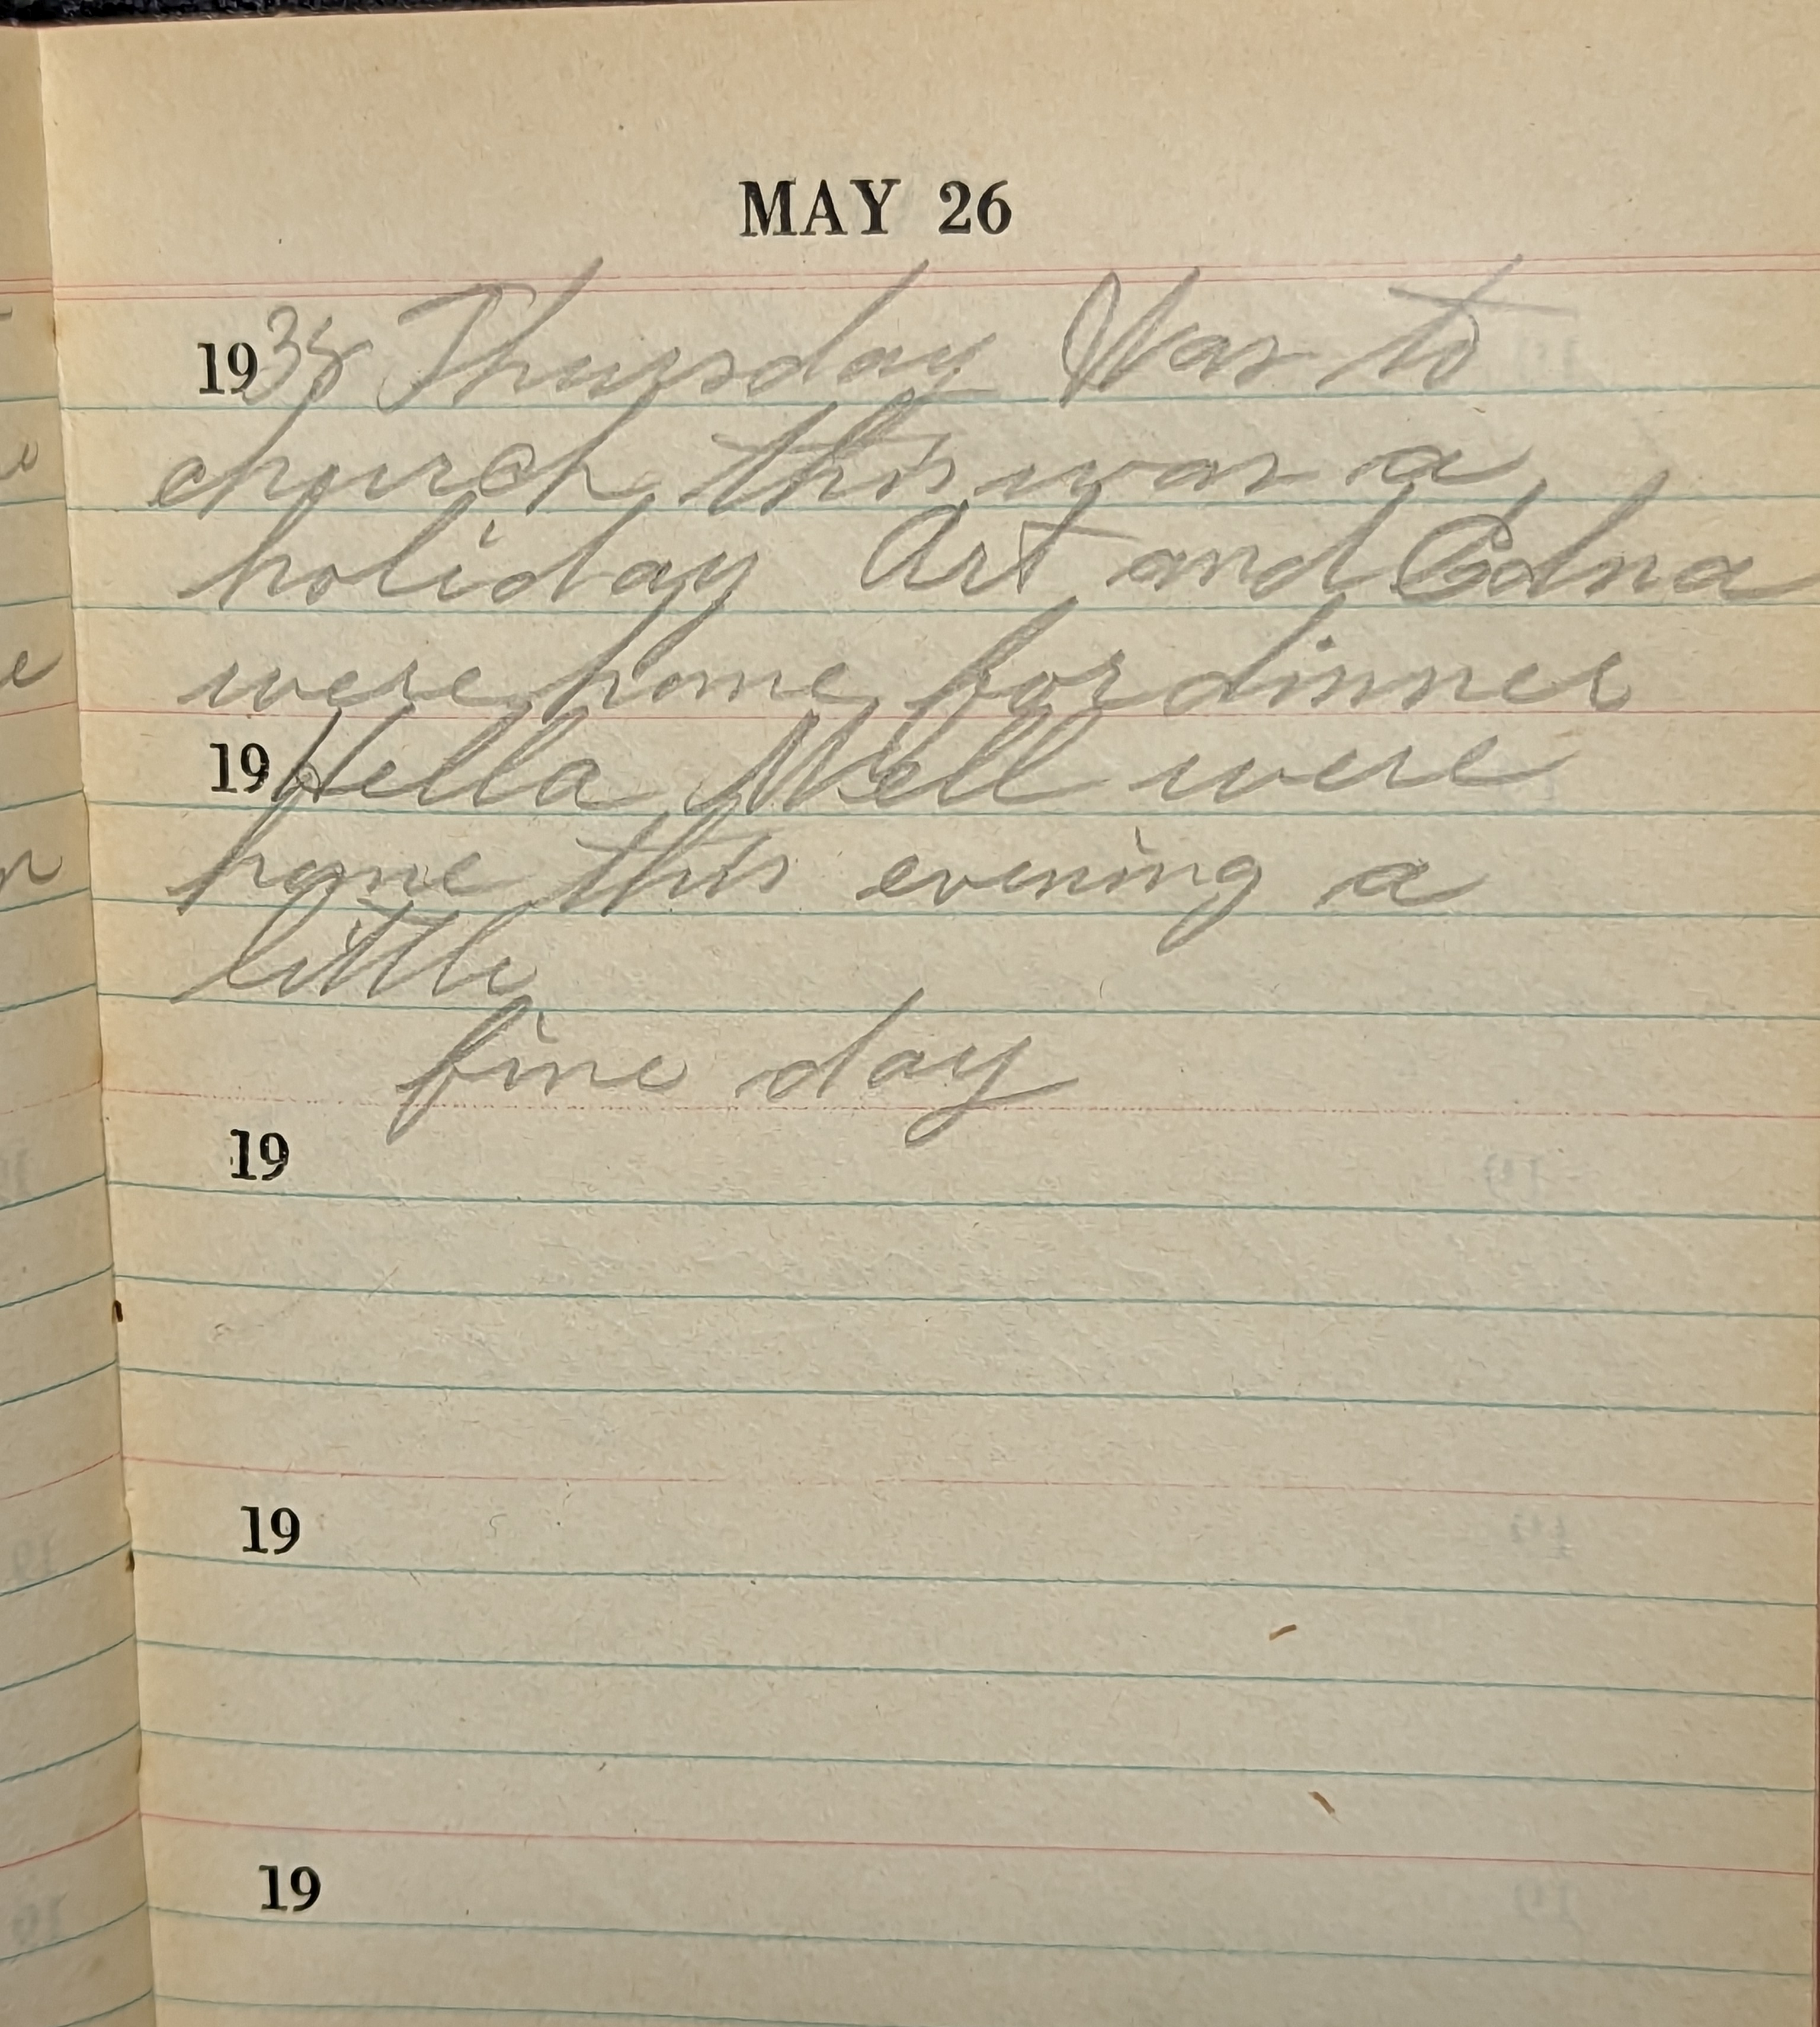 MAY 26
1938 Thursday Was to
church this was a
holiday Art and Edna
were home for dinner
19 Hella Mell were
home this evening a
little
fine day
19
19
19